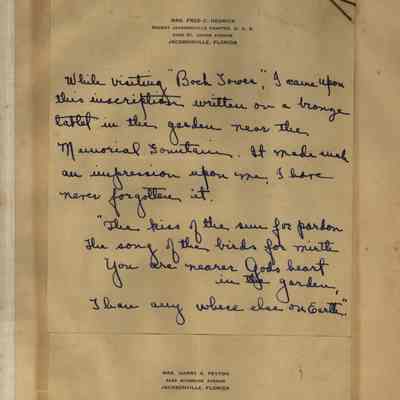 MRS. FRED C. HEDRICK
REGENT JACKSONVILLE CHAPTER, D. A. R.
JACKSONVILLE, FLORIDA
While visiting "Bock Tower", I came upon
this inscription written on a bronze
tablet in the garden near the
Memorial Fountain. It made such
an impression upon me, I have
never forgotten it.
"The kiss of the sun for pardon
The song of the birds for mirth
You are nearer Gods heart
in the garden,
Than any where else on Earth".
MRS. HARRY A. PEYTON
AVENUE
JACKSONVILLE, FLORIDA